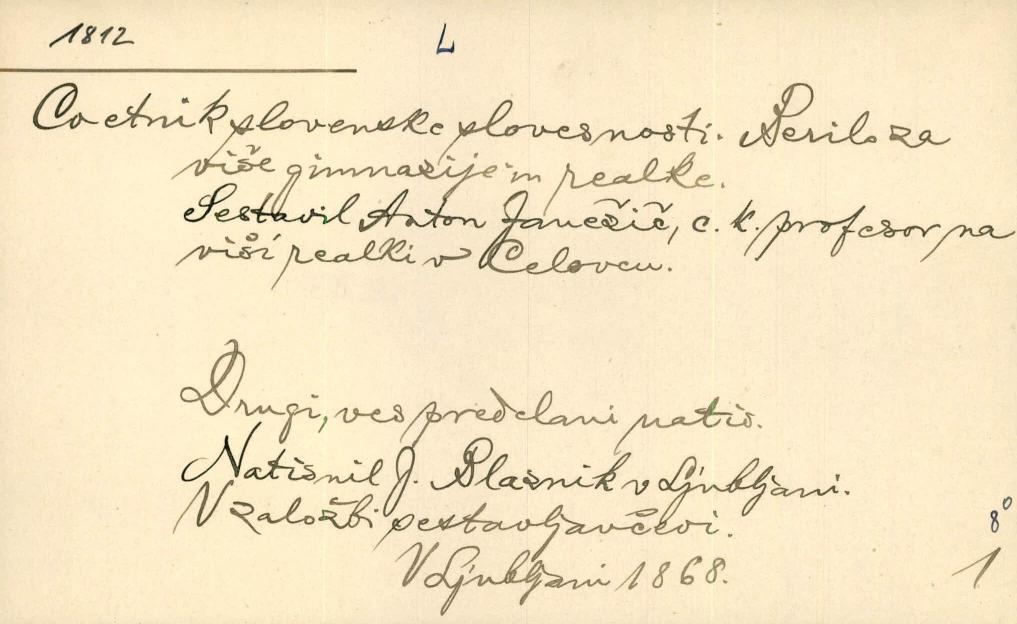 1812
L
Cvetnik slovenske slovesnosti. Berilo za
više gimnazije in realke.
Sestavil Anton Janežič, c. k. profesor na
viši realki v Celovcu.
Drugi, ves predelani natis.
Natisnil J. Blasnik v Ljubljani.
V založbi sestavljavčevi.
8°
V Ljubljani 1868.
1